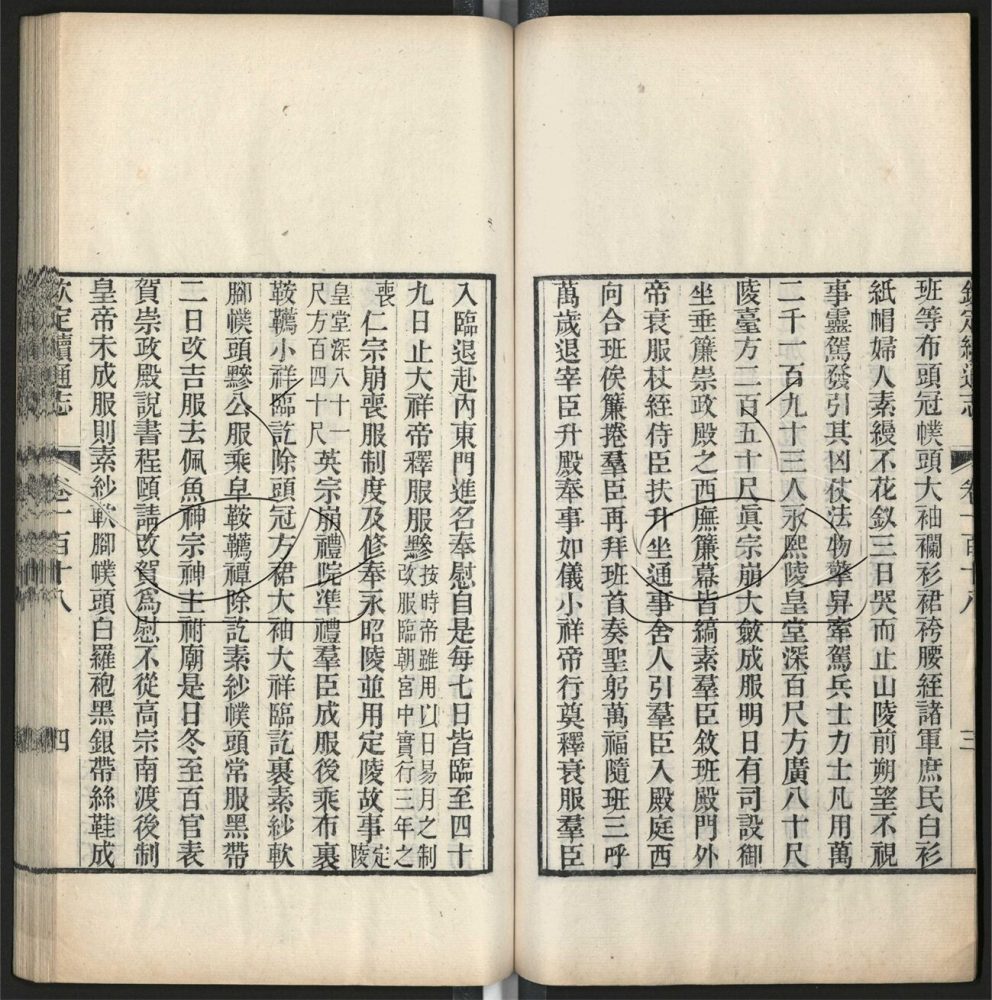 欽定續通志 卷一百十八 三
班等布頭冠幞頭大袖襴衫裙袴腰絰諸軍庶民白衫
紙帽婦人素縵不花釵三日哭而止山陵前朔望不視
事靈駕發引其凶仗法物擎舁牽駕兵士力士凡用萬
二千一百九十三人永熙陵皇堂深百尺方廣八十尺
陵臺方二百五十尺眞宗崩大斂成服明日有司設御
坐垂簾崇政殿之西廡簾幕皆縞素羣臣敘班殿門外
帝衰服杖絰侍臣扶升坐通事舍人引羣臣入殿庭西
向合班俟簾捲羣臣再拜班首奏聖躬萬福隨班三呼
萬歲退宰臣升殿奉事如儀小祥帝行奠釋衰服羣臣
入臨退赴內東門進名奉慰自是每七日皆臨至四十
九日止大祥帝釋服服黲按時帝雖用以日易月之制改服臨朝宮中實行三年之
喪仁宗崩喪服制度及修奉永昭陵並用定陵故事定陵
皇堂深八十一尺方百四十尺英宗崩禮院準禮羣臣成服後乘布裹
鞍韉小祥臨訖除頭冠方裙大袖大祥臨訖裹素紗軟
腳幞頭黲公服乘皁鞍韉禫除訖素紗幞頭常服黑帶
二日改吉服去佩魚神宗神主祔廟是日冬至百官表
賀崇政殿說書程頤請改賀爲慰不從高宗南渡後制
皇帝未成服則素紗軟腳幞頭白羅袍黑銀帶絲鞋成
欽定續通志 卷一百十八 四